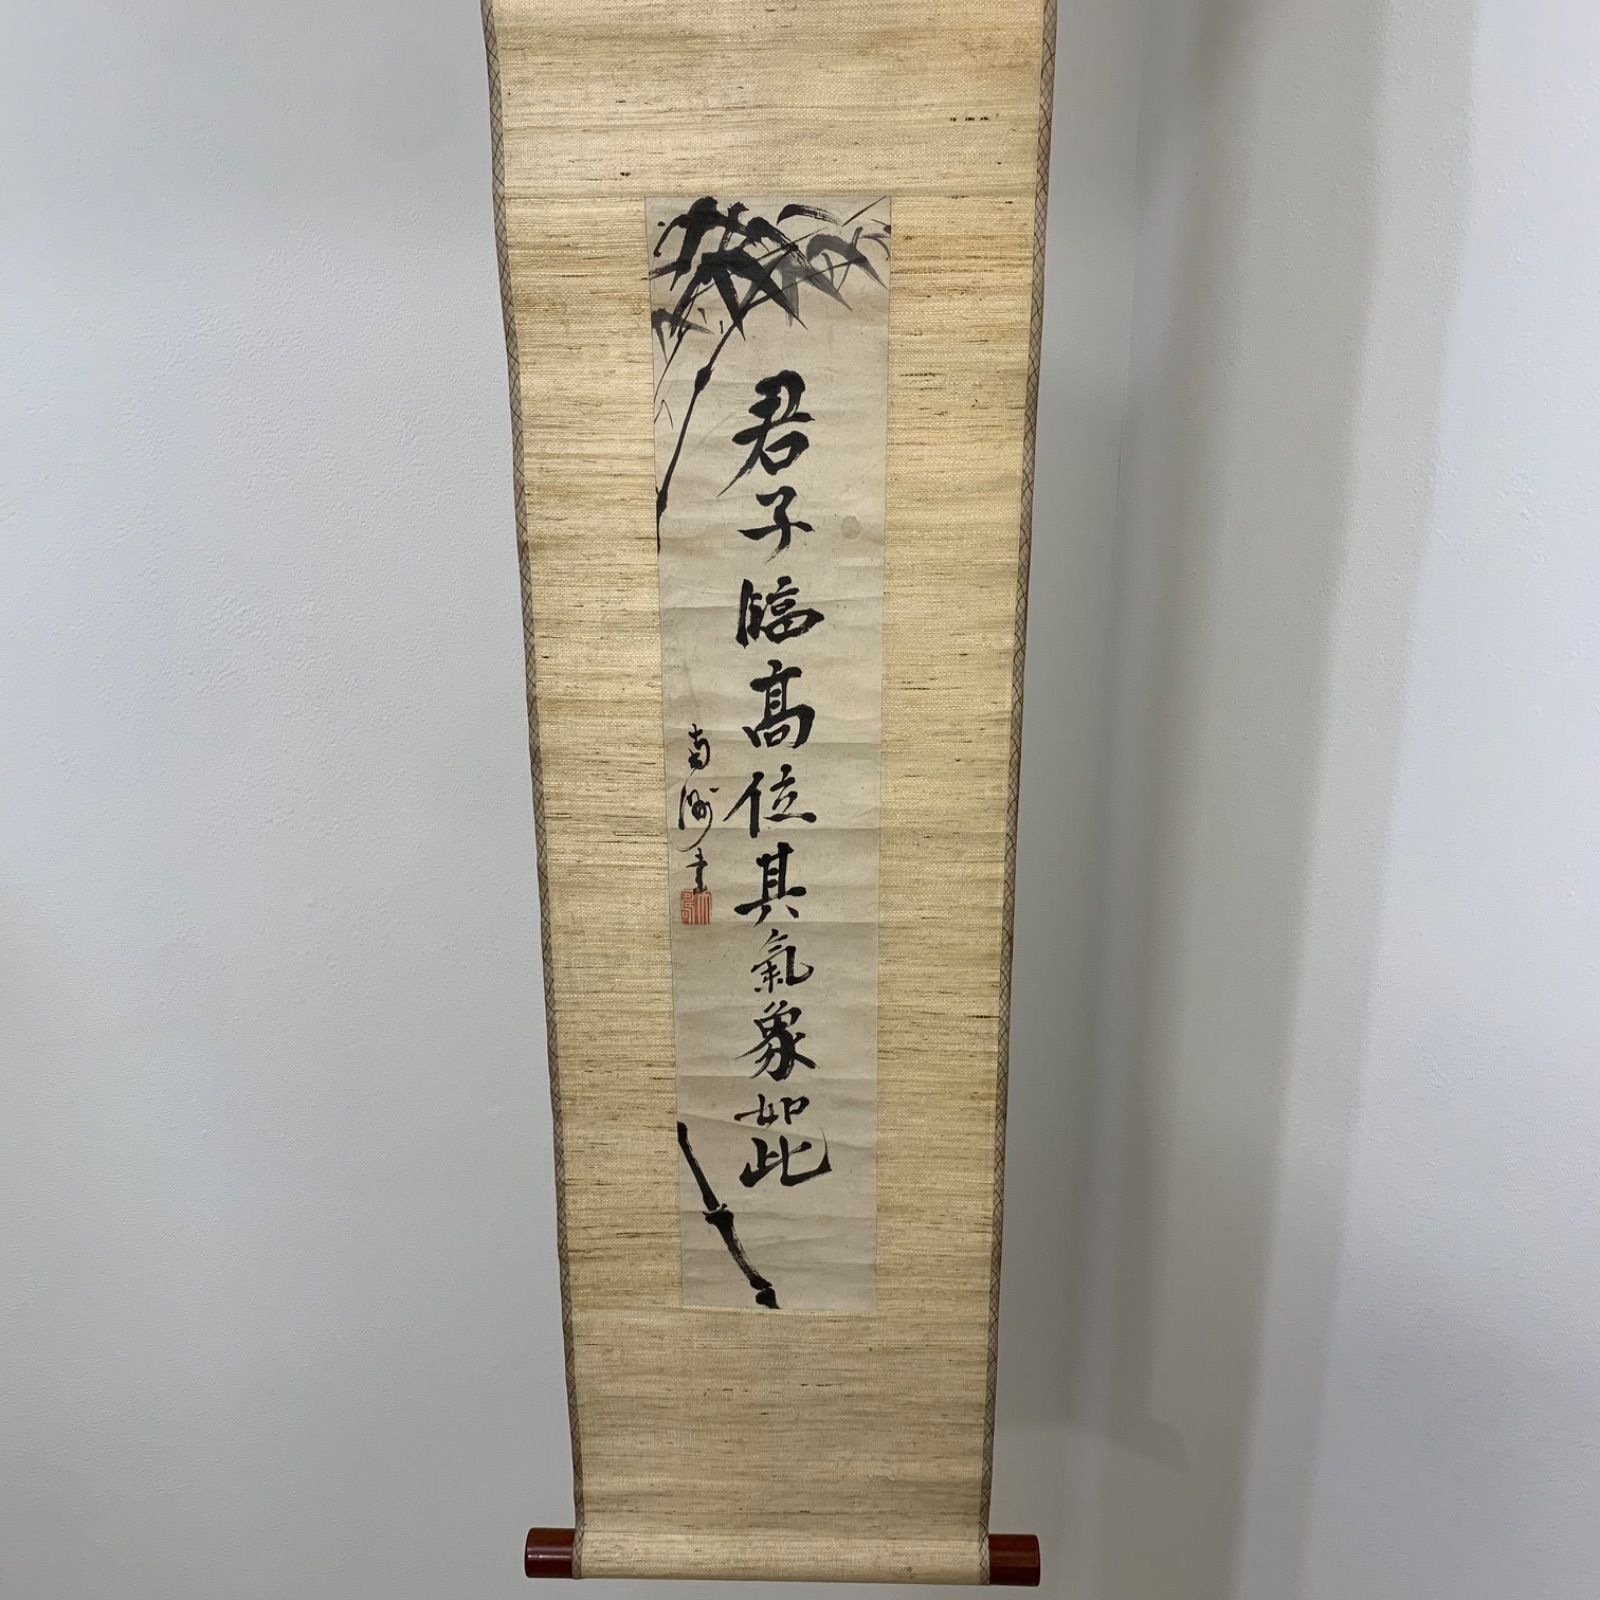 君子臨高位其氣象如此
南洲畫